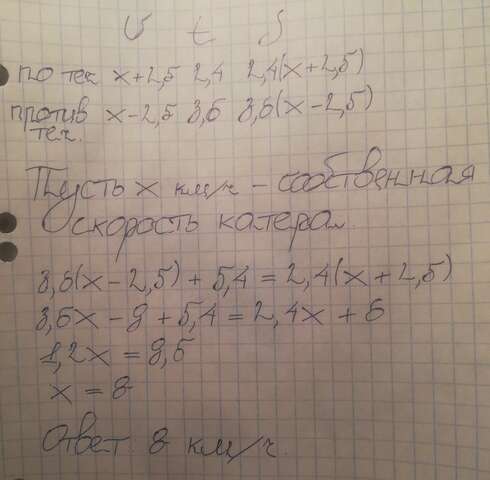 v t S
по теч x+2,5 2,4 2,4(x+2,5)
против x-2,5 3,6 3,6(x-2,5)
теч.
Пусть x км/ч - собственная
скорость катера.
3,6(x-2,5)+5,4=2,4(x+2,5)
3,6x-9+5,4=2,4x+6
1,2x=9,6
x=8
Ответ 8 км/ч.